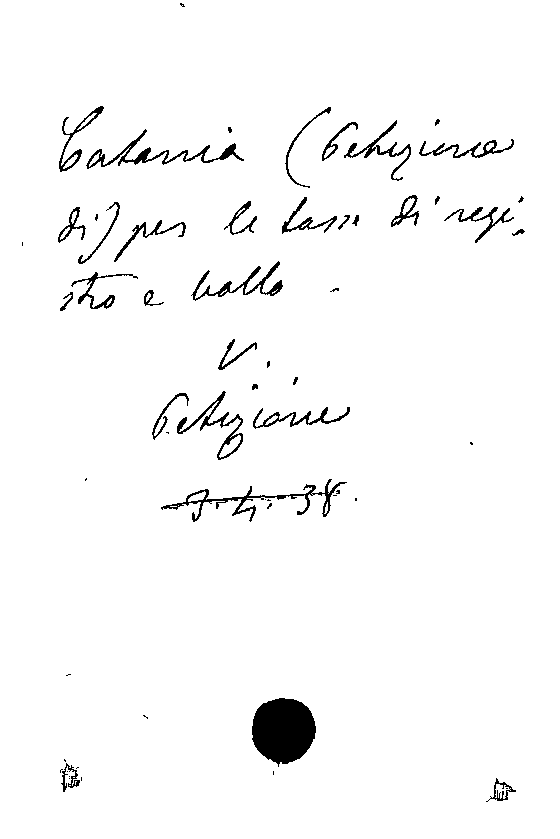 Catania (Petizione
di) per le tasse di regi-
stro e bollo.
V.
Petizione
7. 4. 38.